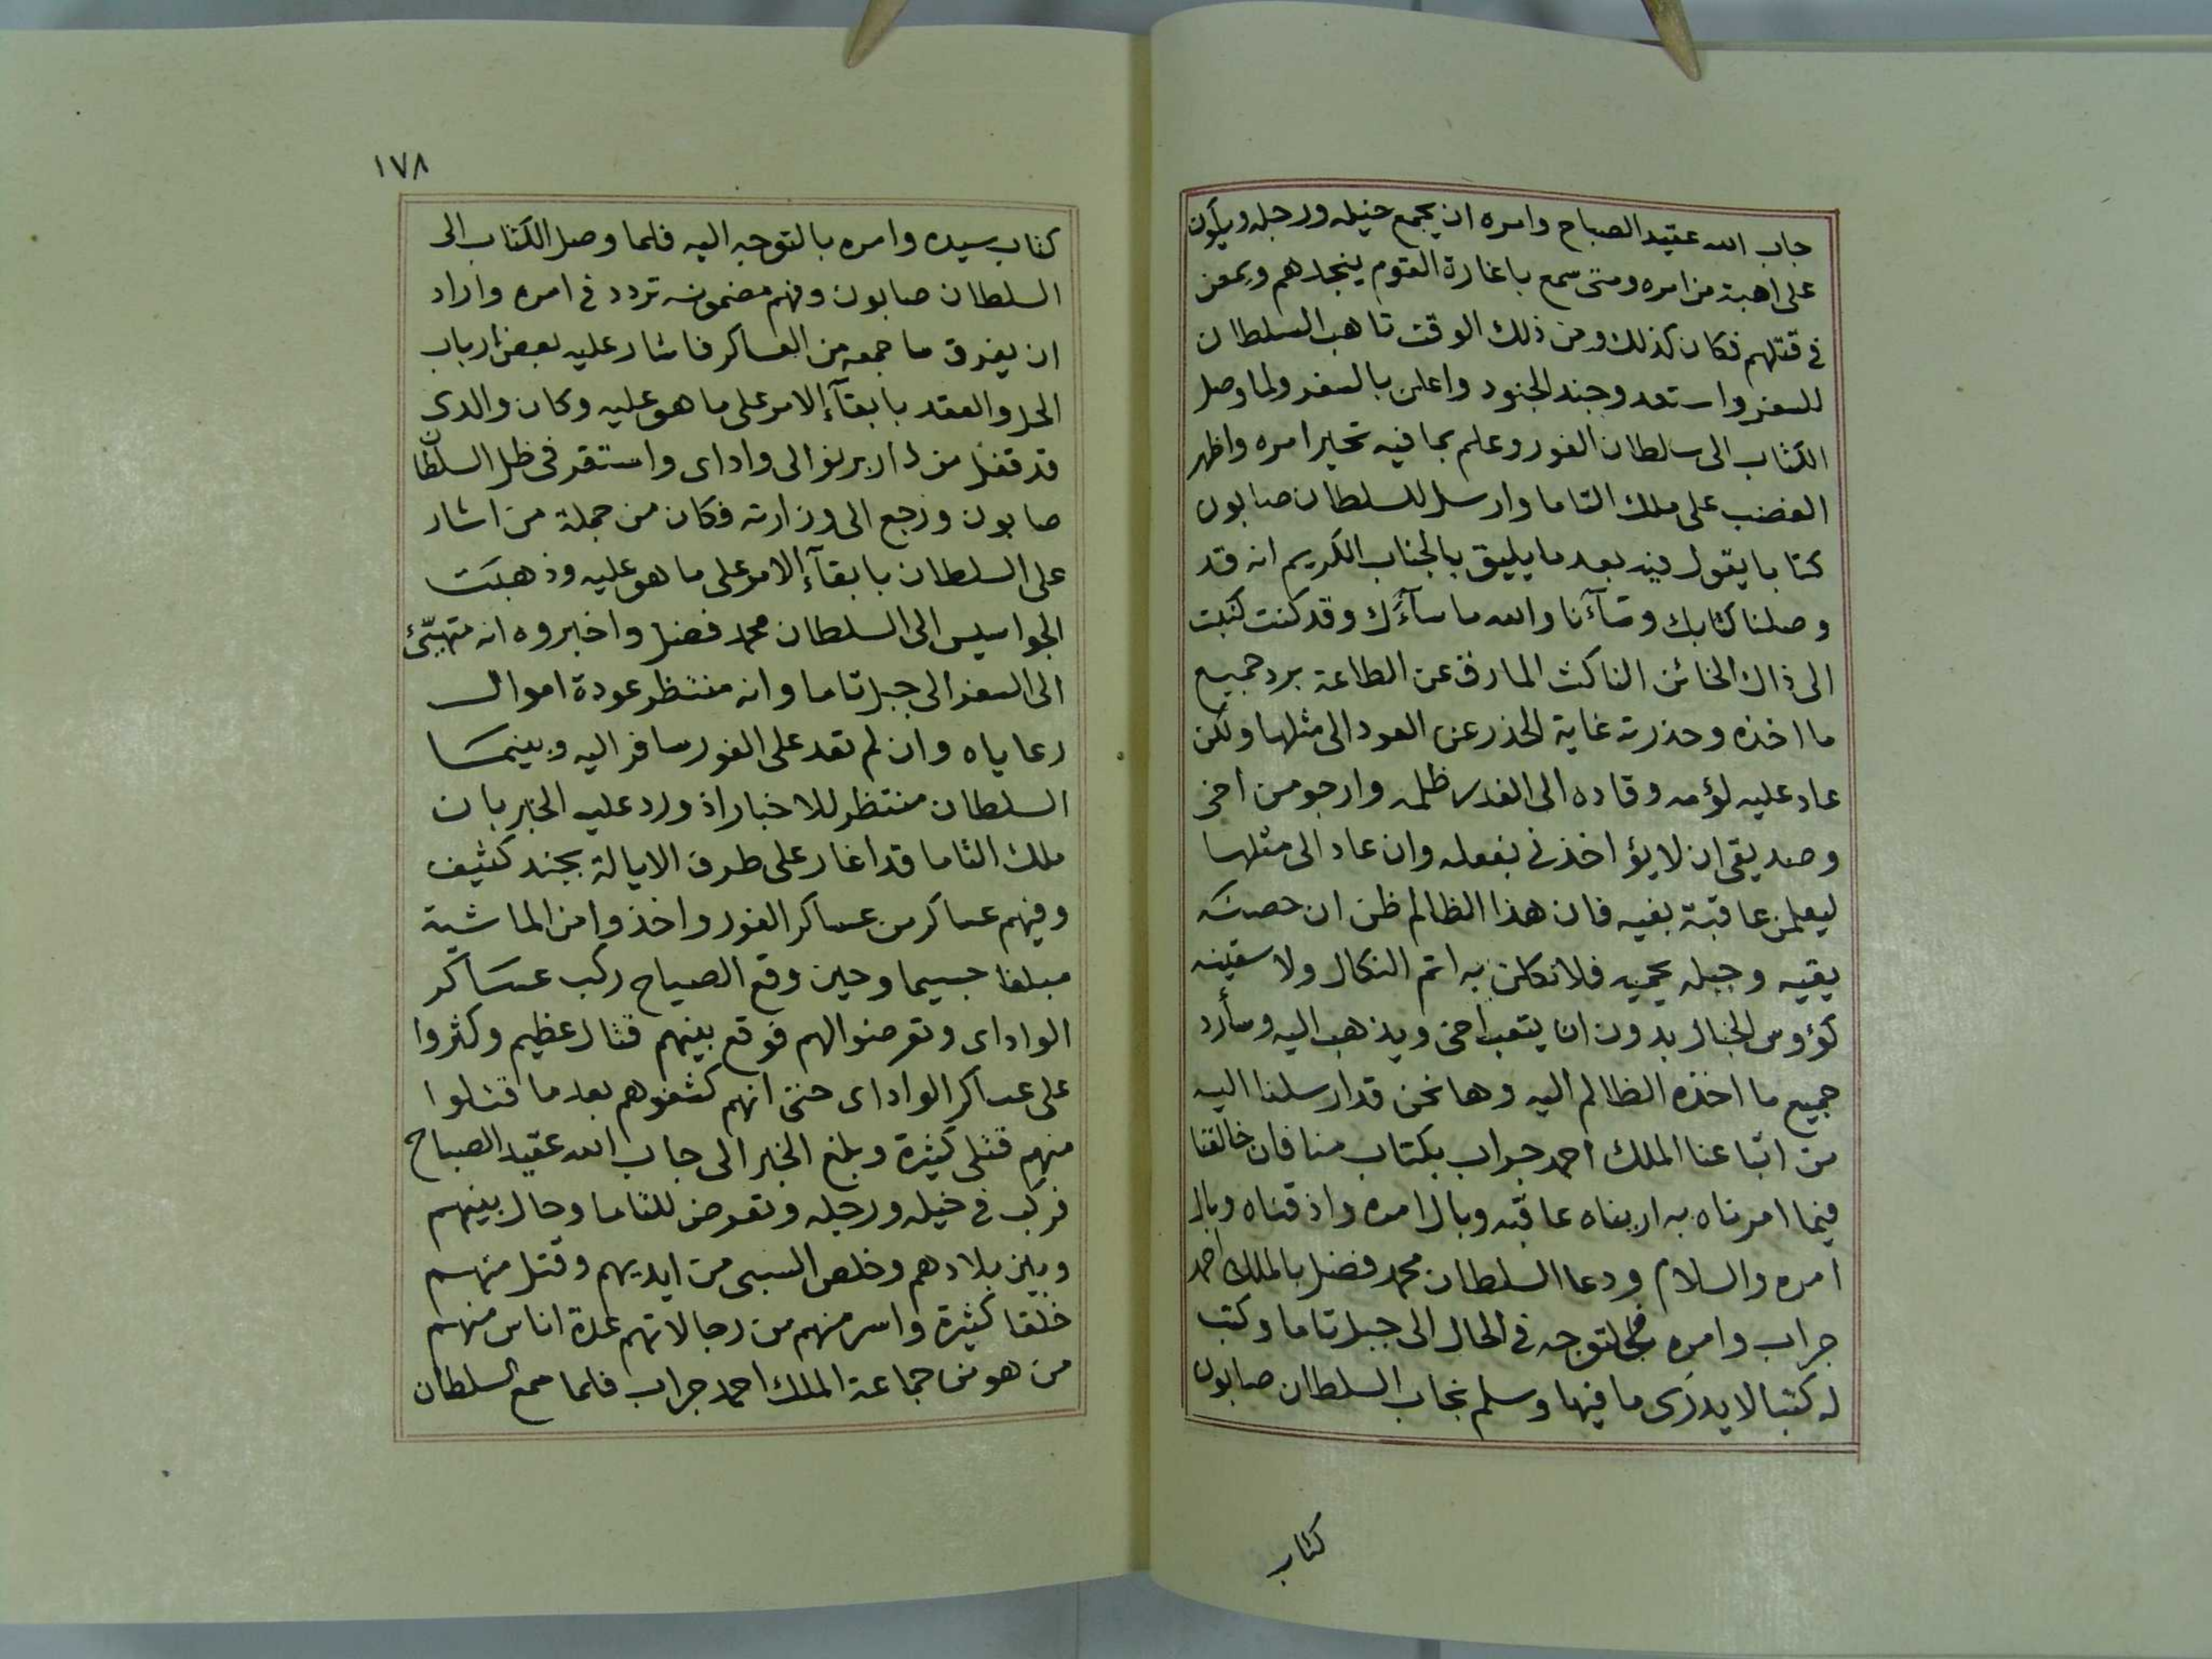 جاب الله عقيد الصباح وامره ان يجمع خيله ورجله ويكون
على اهبة من امره ومتى سمع باغارة القوم ينجدهم ويمعن
في قتلهم فكان كذلك ومن ذلك الوقت تاهب السلطان
للسفر واستعد وجند الجنود واعلن بالسفر ولما وصل
الكتاب الى سلطان الفور وعلم بما فيه تحير امره واظهر
الغضب على ملك التاما وارسل للسلطان صابون
كتابا يقول فيه بعد ما يليق بالجناب الكريم انه قد
وصلنا كتابك وسآءنا والله ما سآءك وقد كنت كتبت
الى ذاك الخائن الناكث المارق عن الطاعة برد جميع
ما اخذه وحذرته غاية الحذر عن العود الى مثلها ولكن
عاد عليه لؤمه وقاده الى الغدر ظلمه وارجو من اخى
وصديقى ان لا يؤاخذنى بفعله وان عاد الى مثلها
ليعلمن عاقبة بغيه فان هذا الظالم ظن ان حصنه
يقيه وجبله يحميه فلانكلن به اتم النكال ولاسقينه
كؤوس الخبال بدون ان يتعب اخى ويذهب اليه وسأرد
جميع ما اخذه الظالم اليه وها نحن قد ارسلنا اليه
من اتباعنا الملك احمد جراب بكتاب منا فان خالفنا
فيما امرناه به اريناه عاقبة وبال امره واذقناه وبال
امره والسلام ودعا السلطان محمد فضل بالملك احمد
جراب وامره بالتوجه في الحال الى جبل تاما وكتب
له كتبا لا يدرى ما فيها وسلم نجاب السلطان صابون
كتاب
١٧٨
كتاب سيده وامره بالتوجه اليه فلما وصل الكتاب الى
السلطان صابون وفهم مضمونه تردد في امره واراد
ان يفرق ما جمعه من العساكر فاشار عليه بعض ارباب
الحل والعقد بابقآء الامر على ما هو عليه وكان والدى
قد قفل من دار برنو الى واداى واستقر فى ظل السلطان
صابون ورجع الى وزارته فكان من جملة من اشار
على السلطان بابقآء الامر على ما هو عليه وذهبت
الجواسيس الى السلطان محمد فضل واخبروه انه متهيّئ
الى السفر الى جبل تاما وانه منتظر عودة اموال
رعاياه وان لم تعد على الفور سافر اليه وبينما
السلطان منتظر للاخبار اذ ورد عليه الخبر بان
ملك التاما قد اغار على طرف الايالة بجند كثيف
وفيهم عساكر من عساكر الفور واخذوا من الماشية
مبلغا جسيما وحين وقع الصياح ركب عساكر
الواداى وتعرضوا لهم فوقع بينهم قتال عظيم وكثروا
على عساكر الواداى حتى انهم كشفوهم بعد ما قتلوا
منهم قتلى كثيرة وبلغ الخبر الى جاب الله عقيد الصباح
فركب في خيله ورجله وتعرض للتاما وحال بينهم
وبين بلادهم وخلص السبى من ايديهم وقتل منهم
خلقا كثيرة واسر منهم من رجالاتهم عدة اناس منهم
من هو من جماعة الملك احمد جراب فلما سمع السلطان